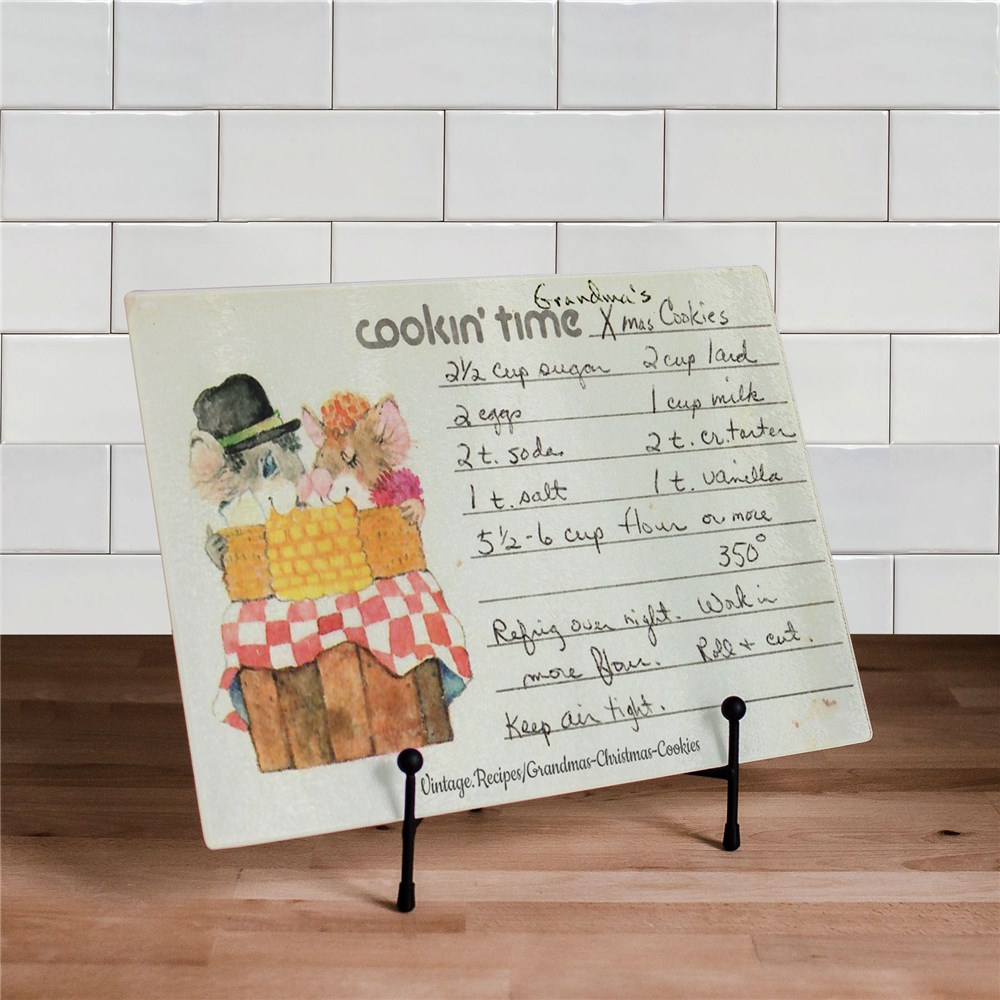 Grandma's
cookin' time Xmas Cookies
2 1/2 cup sugar 2 cup lard
2 eggs 1 cup milk
2 t. soda 2 t. cr. tarter
1 t. salt 1 t. vanilla
5 1/2-6 cup flour or more
350°
Refrig over night. Work in
more flour. Roll + cut.
Keep air tight.
Vintage.Recipes/Grandmas-Christmas-Cookies